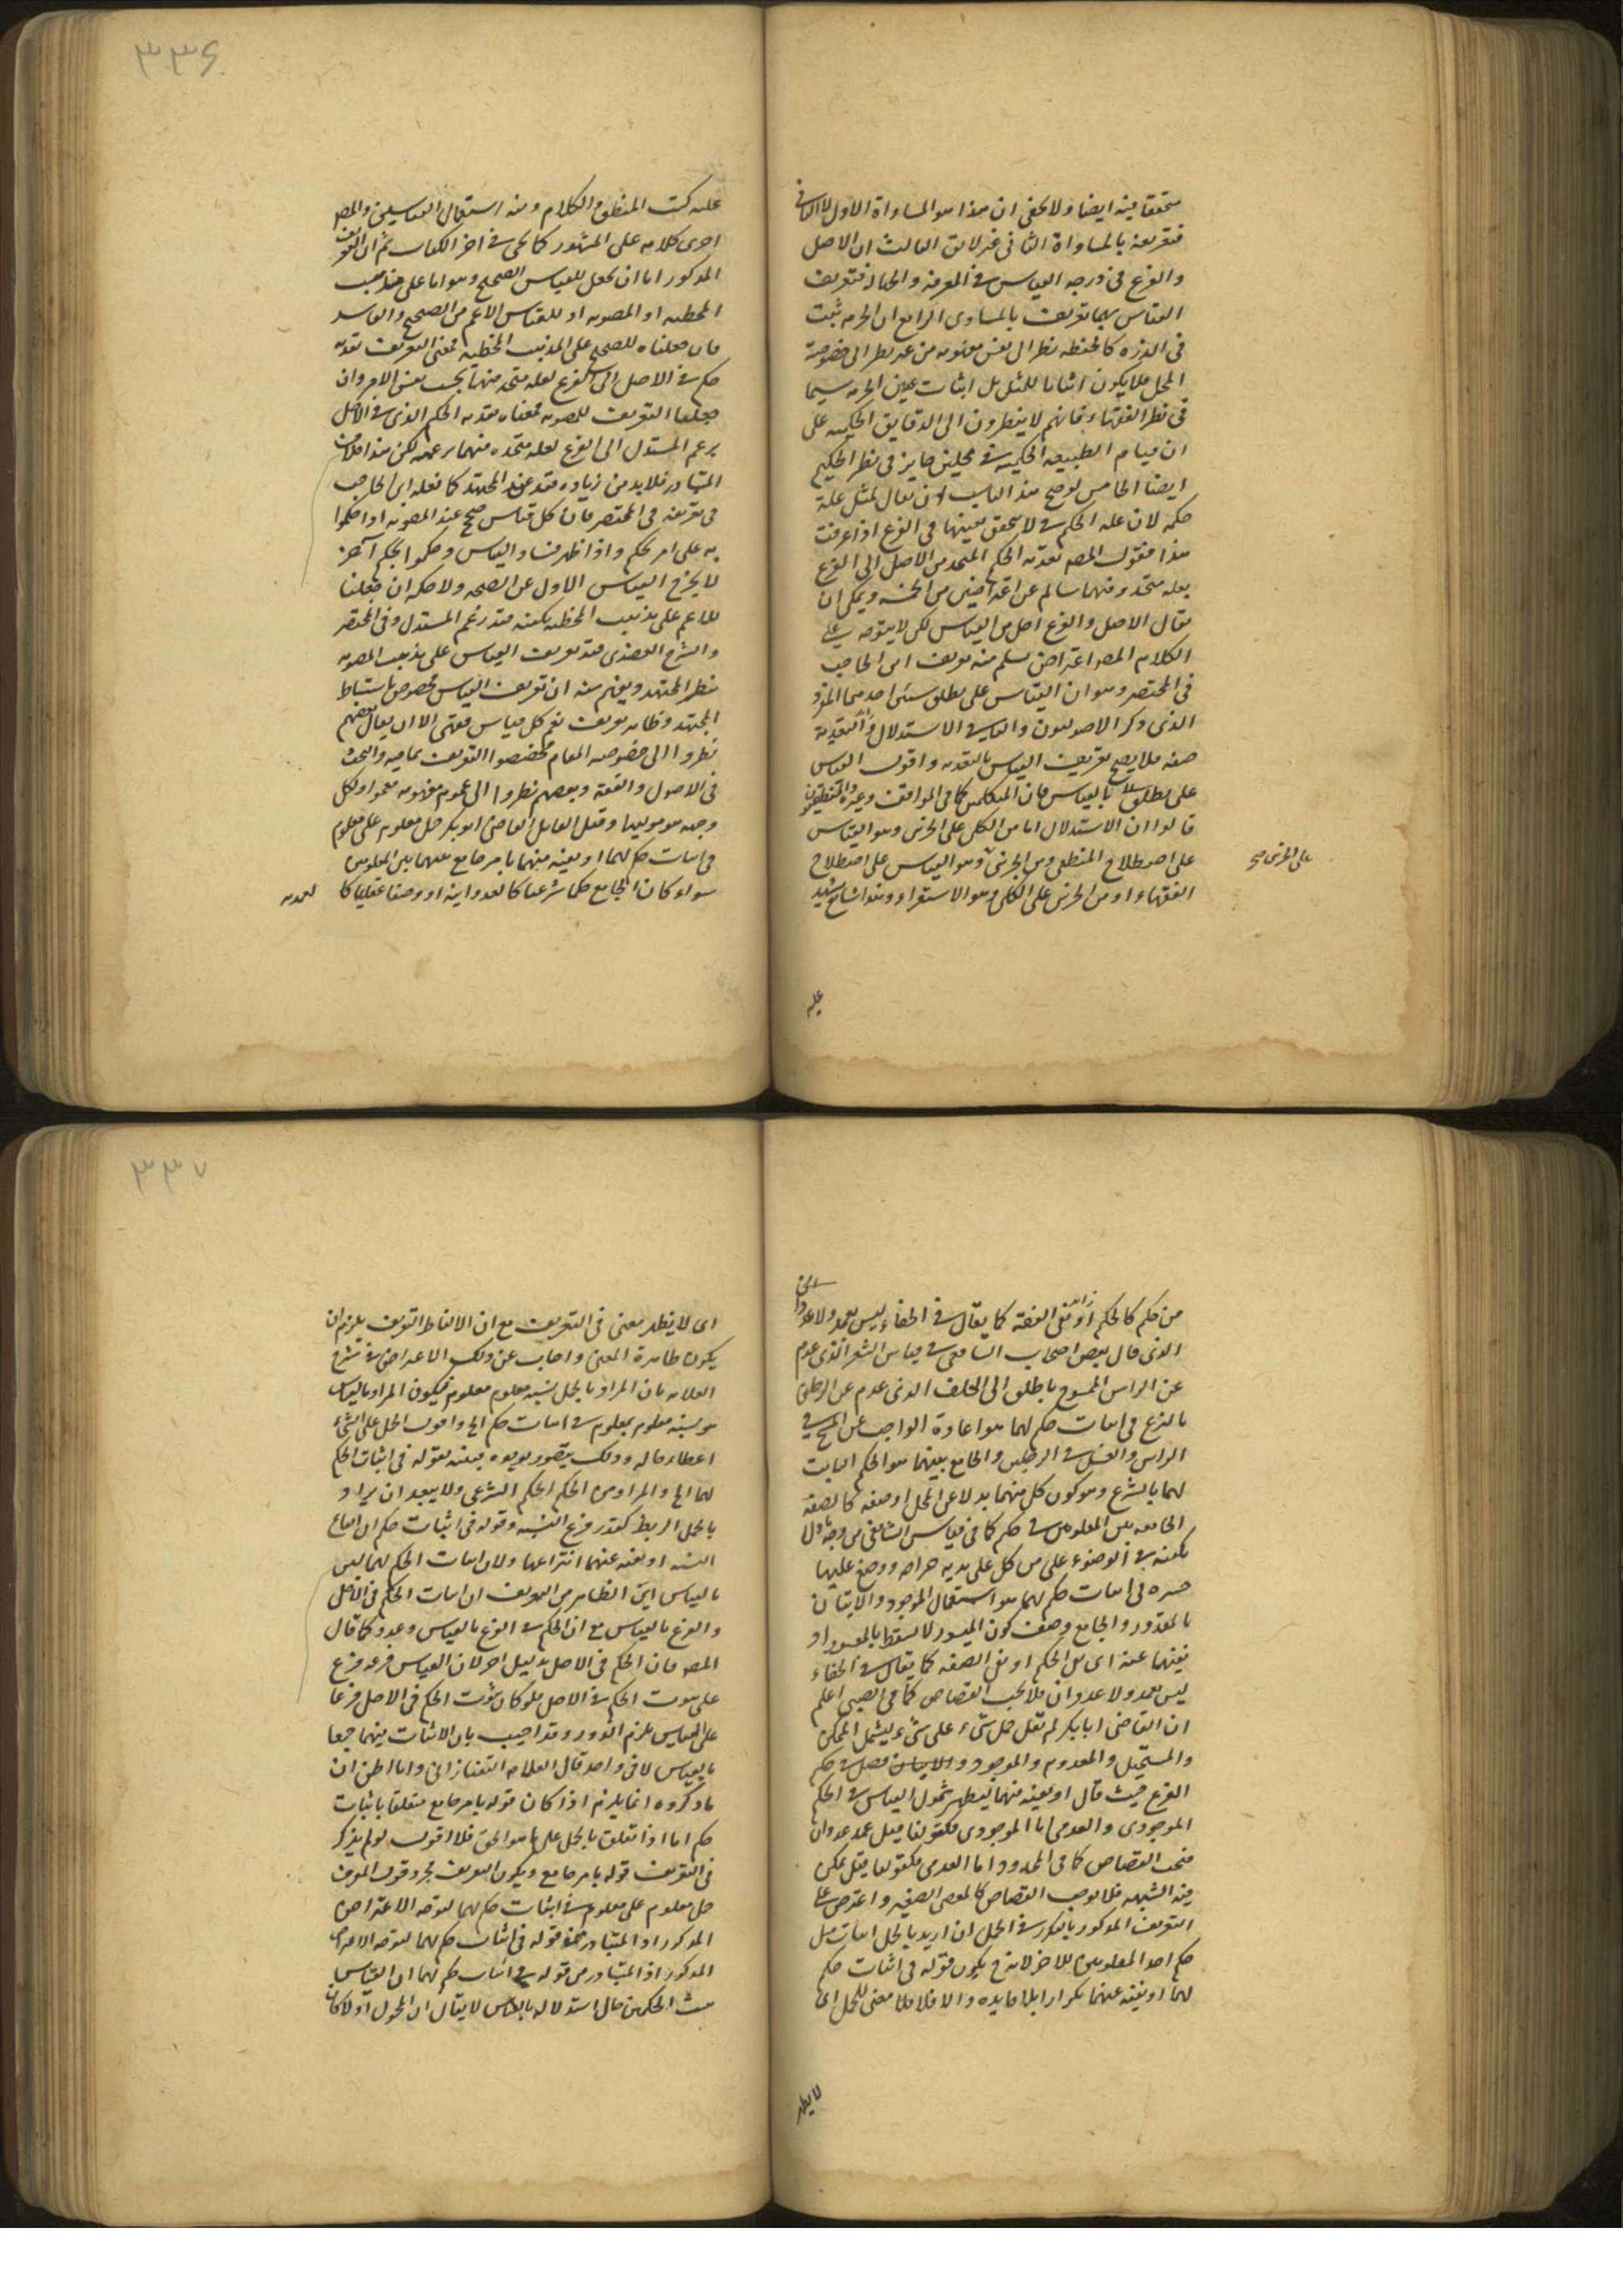 متحققا فيه ايضا ولا يخفى ان هذا هو المساواة الاول لا الثانى
فتعريفه بالمساواة الثانى غير لائق الثالث ان الاصل
والفرع فى درجه القياس فى المعرفة والجهالة فتعريف
القياس بهما تعريف بالمساوى الرابع ان الحرمه ثبت
فى الذره كالحنطه نظرا الى نفس مفهومه من غير نظر الى خصوصية
المحل فلا يكون اثباتا للمثل بل اثبات عين الحرمه سيما
فى نظر الفقهاء فانهم لا ينظرون الى الدقايق الحكميه على
ان قيام الطبيعه الحكميه فى محلين جايز فى نظر الحكيم
ايضا الخامس توضيح هذا ان يقال لمثل علة
حكمه لان عله الحكم لا يتحقق بعينها فى الفرع اذا عرفت
هذا فنقول المص تعديه الحكم المتحد من الاصل الى الفرع
بعله متحده فيهما سالم عن اعتراضين من الخمسه ويمكن ان
يقال الاصل والفرع اصل من القياس لكن لا يتوجه على
الكلام المص اعتراض يسلم منه تعريف ابن الحاجب
فى المختصر وهو ان القياس على يطلق سيئى احدهما المفرد
الذى ذكر الاصوليون والثانى الاستدلال والتعدية
صفه فلا يصح تعريف القياس بالتعديه واقول القياس
على يطلق بالقياس فان المتكلمين كما فى المواقف وغيره والمنطقيون
قالوا ان الاستدلال اما من الكلى على الجزئى وهو القياس
على اصطلاح المنطقى ومن الجزئى وهو القياس على اصطلاح
على الجزئى صح
الفقهاء او من الجزئى على الكلى وهو الاستقراء وهذا شايع يشهد
عليه
٣٣٦
عليه كتب المنطق والكلام ومنه استعمال القياسين والمص
اجرى كلامه على المشهور كما يحى فى اخر الكتاب ثم ان التعريف
المذكور اما ان يجعل للقياس الصحيح وهو اما على مذهب
المخطئه او المصوبه او للقياس الاعم من الصحيح والفاسد
فان جعلناه للصحيح على المذهب المخطئه فمعنى التعريف تعديه
حكم فى الاصل الى الفرع لعله متحده فيهما بحسب نفس الامر وان
جعلنا التعريف للمصوبه فمعناه تعديه الحكم الذى فى الاصل
بزعم المستدل الى الفرع لعله متحده فيهما بزعمه لكن هذا خلاف
المتبادر فلابد من زياده قيد عند المجتهد كما فعله ابن الحاجب
فى تعريفه فى المختصر فان كل قياس صحيح عند المصوبه اذا حكموا
به على امر بحكم واذا ظهر فساد القياس وحكموا بحكم آخر
لا يخرج القياس الاول عن الصحه ولا حكمه ان جعلنا
للاعم على مذهب المخطئه يكفيه قيد زعم المستدل وفى المختصر
والشرح العضدى قيد تعريف القياس على مذهب المصوبه
بنظر المجتهد ويفهم منه ان تعريف القياس مخصوص باستنباط
المجتهد وظاهر تعريف يعم كل قياس فقهى الا ان يقال بعضهم
نظروا الى خصوصيه المقام فخصصوا التعريف بما فيه والبحث
فى الاصول والفقه وبعضهم نظروا الى عموم مفهومه فعمموا ولكل
وجهه هو موليها وقيل القايل القاضى ابو بكر حمل معلوم على معلوم
فى اثبات حكم لهما او نفيه عنهما بامر جامع بينهما بين المعلومين
سواء كان الجامع حكما شرعيا كالعدوانيه او وصفا عقليا كا
لعمديه
من حكم كالحكم او نفى الصفة كما يقال فى الخطاء ليس بعمد ولا عدوان
الذى قال بعض اصحاب الشافعى فى قياس الشعر الذى عدم
عن الراس الممسوح باطلق الى الخلف الذى عدم عن الرجلين
بالنزع فى اثبات حكم لهما هو اعادة الواجب من المسح فى
الراس والغسل فى الرجلين والجامع بينهما هو الحكم الثابت
لهما بالشرع وهو كون كل منهما بدلا عن المحل او صفه كالصفه
الجامعه بين المعلومين فى حكم كما فى قياس الشافعى من وجد ماء لا
يكفيه فى الوضوء على من كل على يديه جراحه ووضع عليها
جبيره فى اثبات حكم لهما هو استعمال الموجود والاتيان
بالمقدور والجامع وصف كون الميسور لا يسقط بالمعسور او
نفيهما عنه اى من الحكم او نفى الصفه كما يقال فى الخطاء
ليس بعمد ولا عدوان فلا يجب القصاص كما فى الصبى اعلم
ان القاضى ابا بكر لم يقل حمل شىء على شىء ليشمل الممكن
والمستحيل والمعدوم والموجود وفصل فى حكم
الفرع حيث قال او نفيه عنهما ليظهر شمول القياس فى الحكم
الوجودى والعدمى اما الوجودى فكقولنا قتل عمد عدوان
فيجب القصاص كما فى المحدد واما العدمى فكقولنا قتل تمكن
فيه الشبهه فلا يوجب القصاص كالعصى الصغير واعترض على
التعريف المذكور بالتكرر فى الحمل ان اريد بالحمل اثبات مثل
حكم احد المعلومين للاخر لانه يكون قوله فى اثبات حكم
لهما او نفيه عنهما تكرارا بلا فايده والا فلا معنى للحمل اى
لا يظهر
٣٣٧
اى لا يظهر معنى فى التعريف مع ان الالفاظ التعريف يلزم ان
يكون ظاهرة المعنى واجاب عن ذلك الاعتراض فى شرح
العلامه بان المراد بالحمل نسبه معلوم بمعلوم فيكون المراد بالقياس
هو نسبه معلوم بمعلوم فى اثبات حكم الخ واقول الحمل على الشىء
اعطاء حاله وذلك يتصور بوجوه فبينه بقوله فى اثبات الحكم
لهما الخ والمراد من الحكم الحكم الشرعى ولا يبعد ان يراد
بالحمل الربط كقدر فرع النسبه وقوله فى اثبات حكم ان ايقاع
النسبه او نفيه عنهما انتزاعها ولان اثبات الحكم لهما ليس
بالقياس اين الظاهر من التعريف ان اثبات الحكم فى الاصل
والفرع بالقياس مع ان الحكم فى الفرع بالقياس وحده كما قال
المص فان الحكم فى الاصل بدليل اخر لان القياس فرعه فرع
على ثبوت الحكم فى الاصل فلو كان ثبوت الحكم فى الاصل فرعا
على القياس يلزم الدور وقد اجيب بان الاثبات فيهما جمعا
بالقياس لا فى واحد قال العلامه التفتازانى وانا اظن ان
ما ذكروه انما يلزم اذا كان قوله بامر جامع متعلقا باثبات
حكم اما اذا تعلق بالحمل على ما هو الحق فلا اقول لو لم يذكر
فى التعريف قوله بامر جامع ويكون التعريف مجرد قول المعرف
حمل معلوم على معلوم فى اثبات حكم لهما لتوجه الاعتراض
المذكور اذ المتبادر من قوله فى اثبات حكم لهما لتوجه الاعتراض
المذكور اذ المتبادر من قوله فى اثبات حكم لهما ان القياس
مثبت الحكمين حال استدلاله بالقياس لا يقال ان المحمول اولا كان